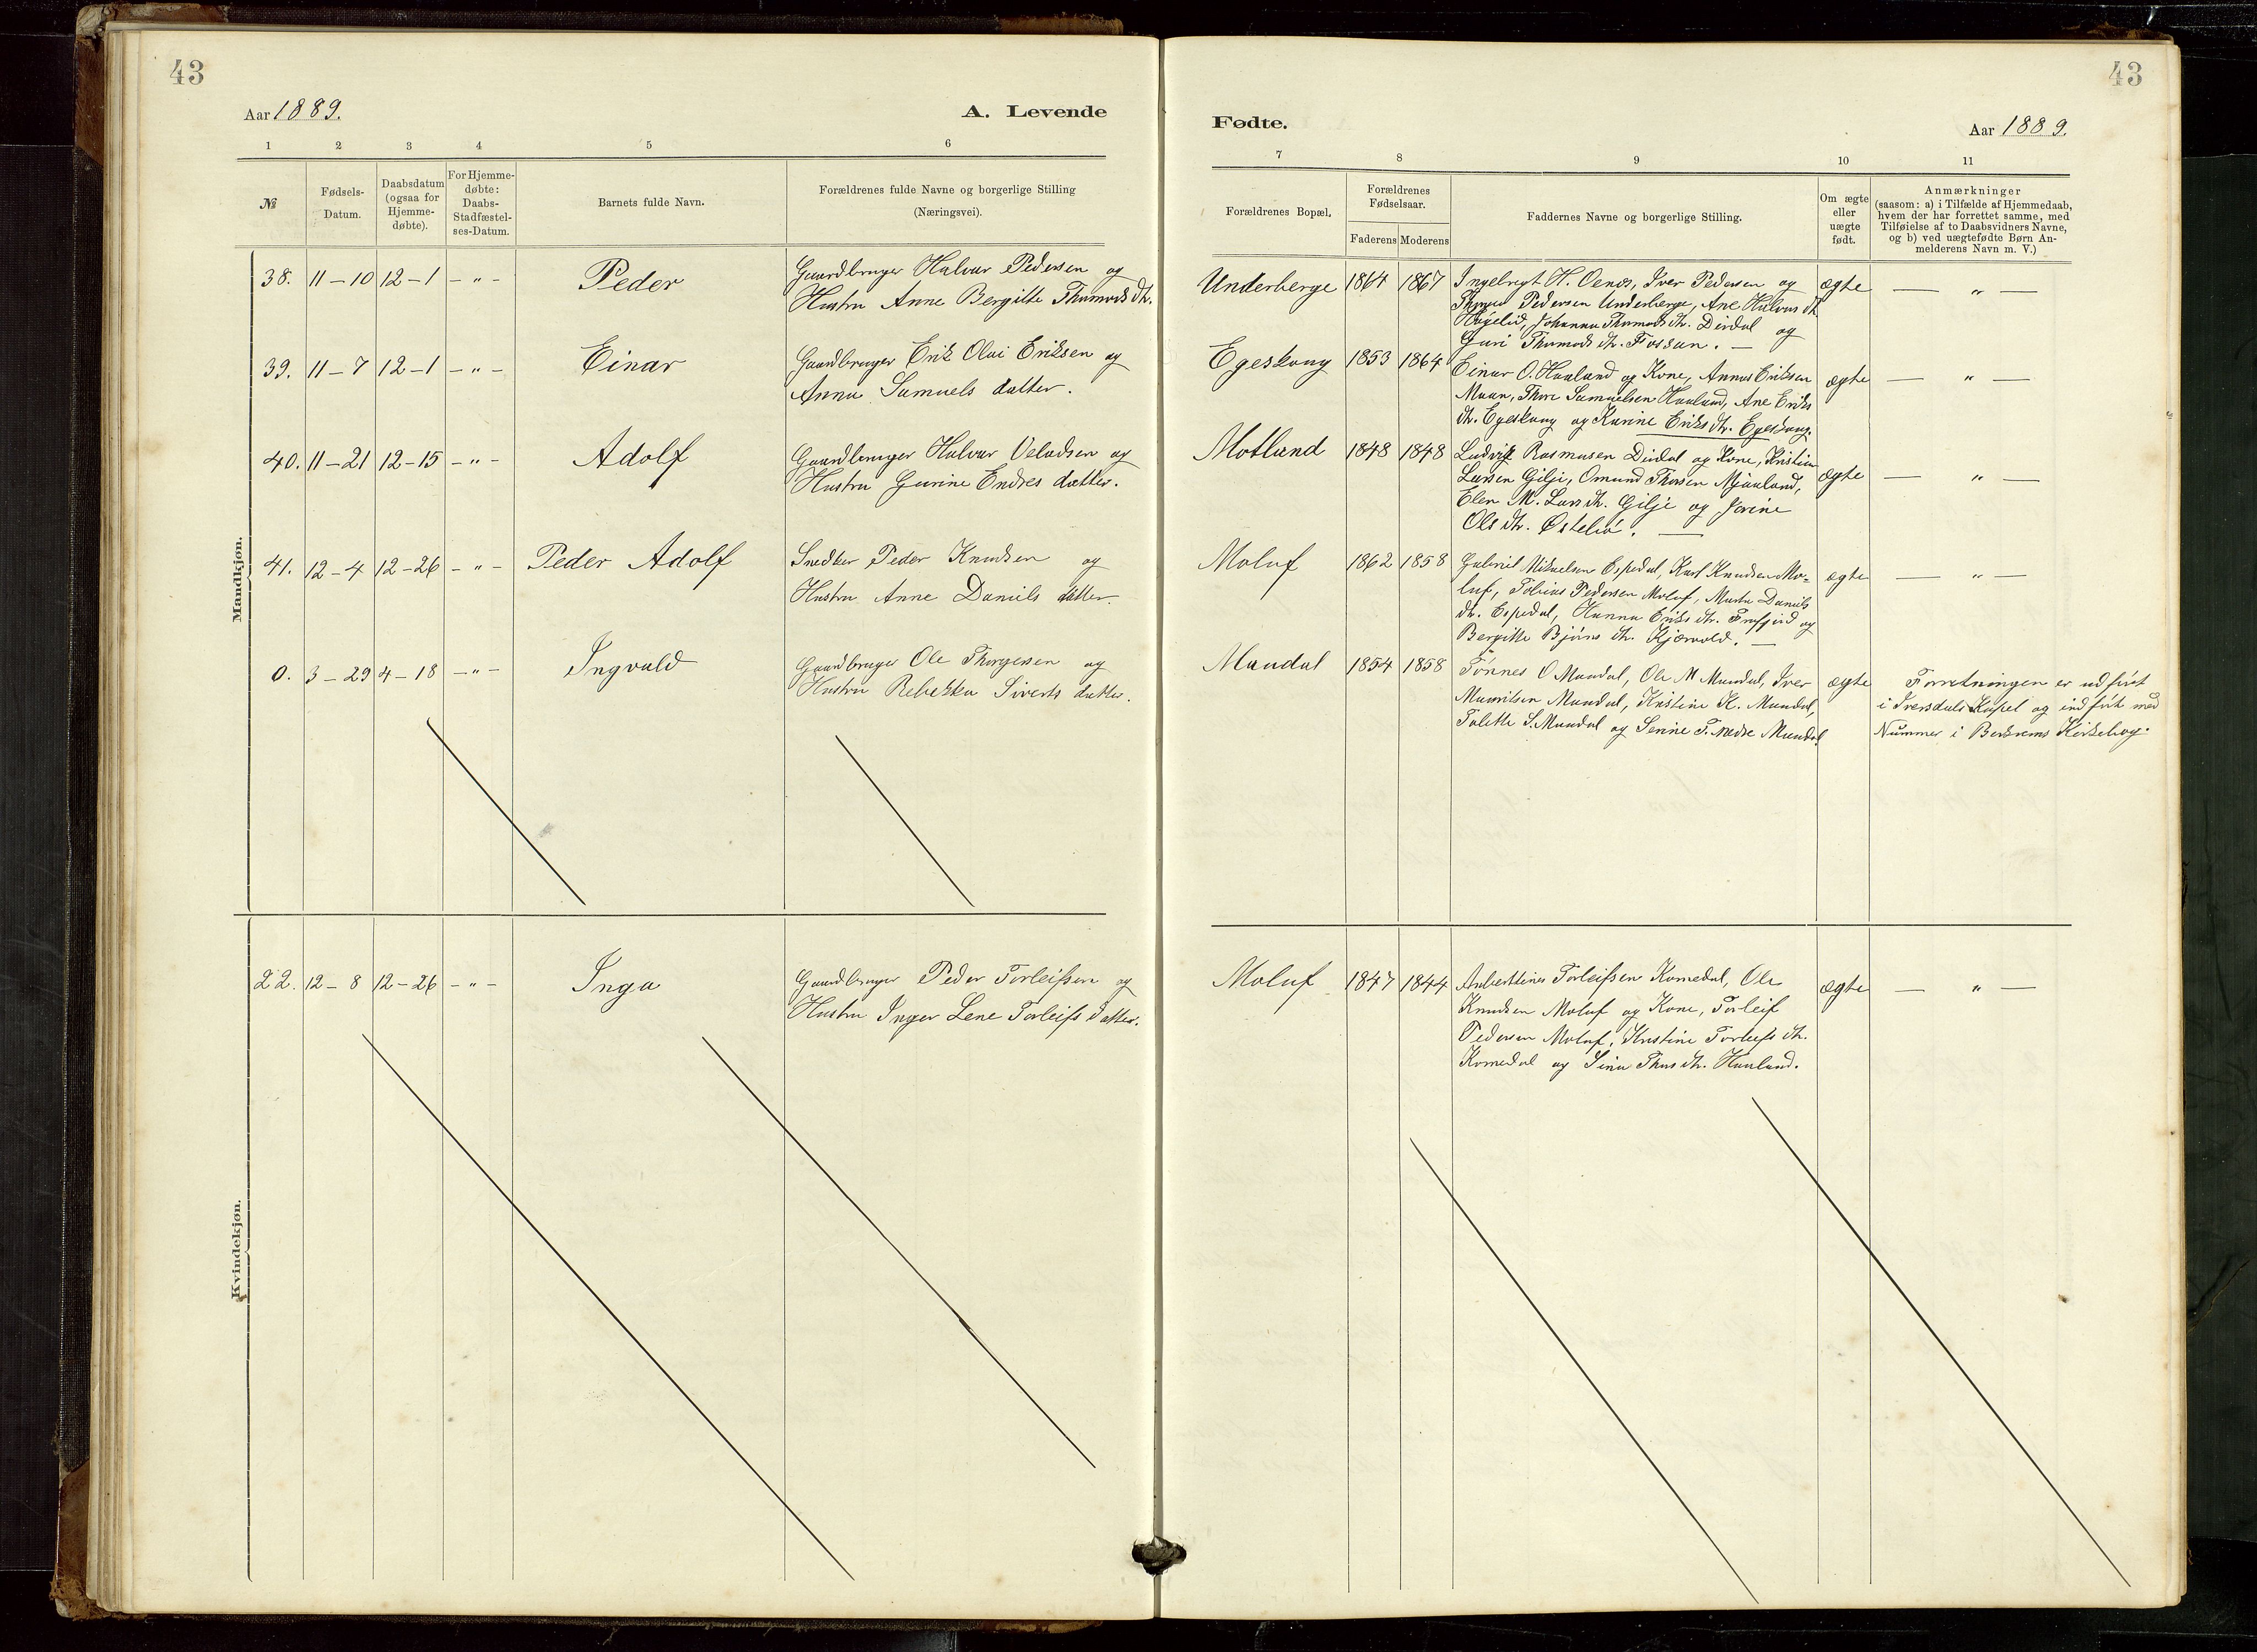 43
Aar 1889.
A. Levende
1 2 3 4 5 6
№
Fødsels-
Datum.
Daabsdatum
(ogsaa for
Hjemme-
døbte).
For Hjemme-
døbte:
Daabs-
Stadfæstel-
ses-Datum.
Barnets fulde Navn.
Forældrenes fulde Navne og borgerlige Stilling
(Næringsvei).
Mandkjøn.
38. 11-10 12-1 - „ - Peder Gaardbruger Halvar Pedersen og
Hustru Anne Bergitte Thormods dtr.
39. 11-7 12-1 - „ - Einar Gaardbruger Erik Olai Eriksen og
Anna Samuels datter.
40. 11-21 12-15 - „ - Adolf Gaardbruger Halvar Veladsen og
Hustru Gurine Endres datter.
41. 12-4 12-26 - „ - Peder Adolf Snedker Peder Knudsen og
Hustru Anne Daniels datter.
0. 3-29 4-18 - „ - Ingvald Gaardbruger Ole Thorgersen og
Hustru Rebekka Siverts datter.
Kvindekjøn.
22. 12-8 12-26 - „ - Inga Gaardbruger Peder Torleifsen og
Hustru Inger Lene Torleifs datter.
43
Fødte.
Aar 1889.
7 8 9 10 11
Forældrenes Bopæl.
Forældrenes
Fødselsaar.
Faderens Moderens
Faddernes Navne og borgerlige Stilling.
Om ægte
eller
uægte
født.
Anmærkninger
(saasom: a) i Tilfælde af Hjemmedaab,
hvem der har forrettet samme, med
Tilføielse af to Daabsvidners Navne,
og b) ved uægtefødte Børn An-
melderens Navn m. V.)
Underberge 1864 1867 Ingebregt H. Oenes, Iver Pedersen og ægte — „ —
Pedersen Underberge, Ane Halvars dtr.
Høgelid, Johanna Thormods dtr. Dirdal og
Guri Thormods dtr. Fossan. —
Egeskaug 1853 1864 Einar O. Haaland og Kone, Annas Eriksen ægte — „ —
Maan, Thore Samuelsen Haaland, Ane Eriks
dtr. Egeskaug og Karine Eriks dtr. Egeskaug.
Motland 1848 1848 Ludvik Rasmusen Dirdal og Kone, Kristian ægte — „ —
Larsen Gilje, Omund Thorsen Mjaaland,
Elen M. Lars dtr. Gilje og Jorine
Ols dtr. Østeliø. —
Moluf 1862 1858 Gabriel Mikaelsen Espedal, Karl Knudsen Mo- ægte — „ —
luf, Tobias Pedersen Moluf, Marta Daniels
dtr. Espedal, Hanna Eriks dtr. Frafjord og
Bergitte Bjørns dtr. Kjærvold. —
Maudal 1854 1858 Tønnes O Maudal, Ole M Maudal, Iver ægte Forretningen er udført
Mauritsen Maudal, Kristine K. Maudal, i Iversdals Kapel og indført med
Talette S. Maudal og Serine T. nedre Maudal Nummer i Berkrems Kirkebog.
Moluf 1847 1844 Anbertines Torleifsen Komedal, Ole ægte — „ —
Knudsen Moluf og Kone, Torleif
Pedersen Moluf, Kristine Torleifs dtr.
Komedal og Sina Thors dtr. Haaland.